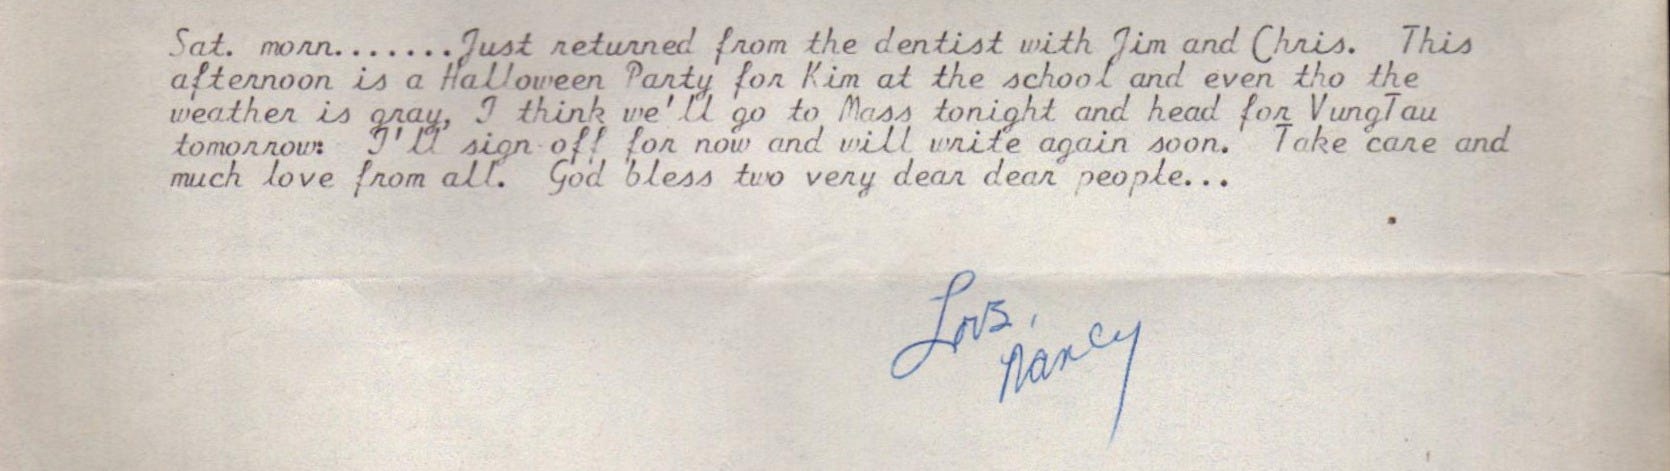 Sat. morn.......Just returned from the dentist with Jim and Chris.  This
afternoon is a Halloween Party for Kim at the school and even tho the
weather is gray, I think we'll go to Mass tonight and head for VungTau
tomorrow:  I'll sign off for now and will write again soon.  Take care and
much love from all.  God bless two very dear dear people...
Love,
Nancy